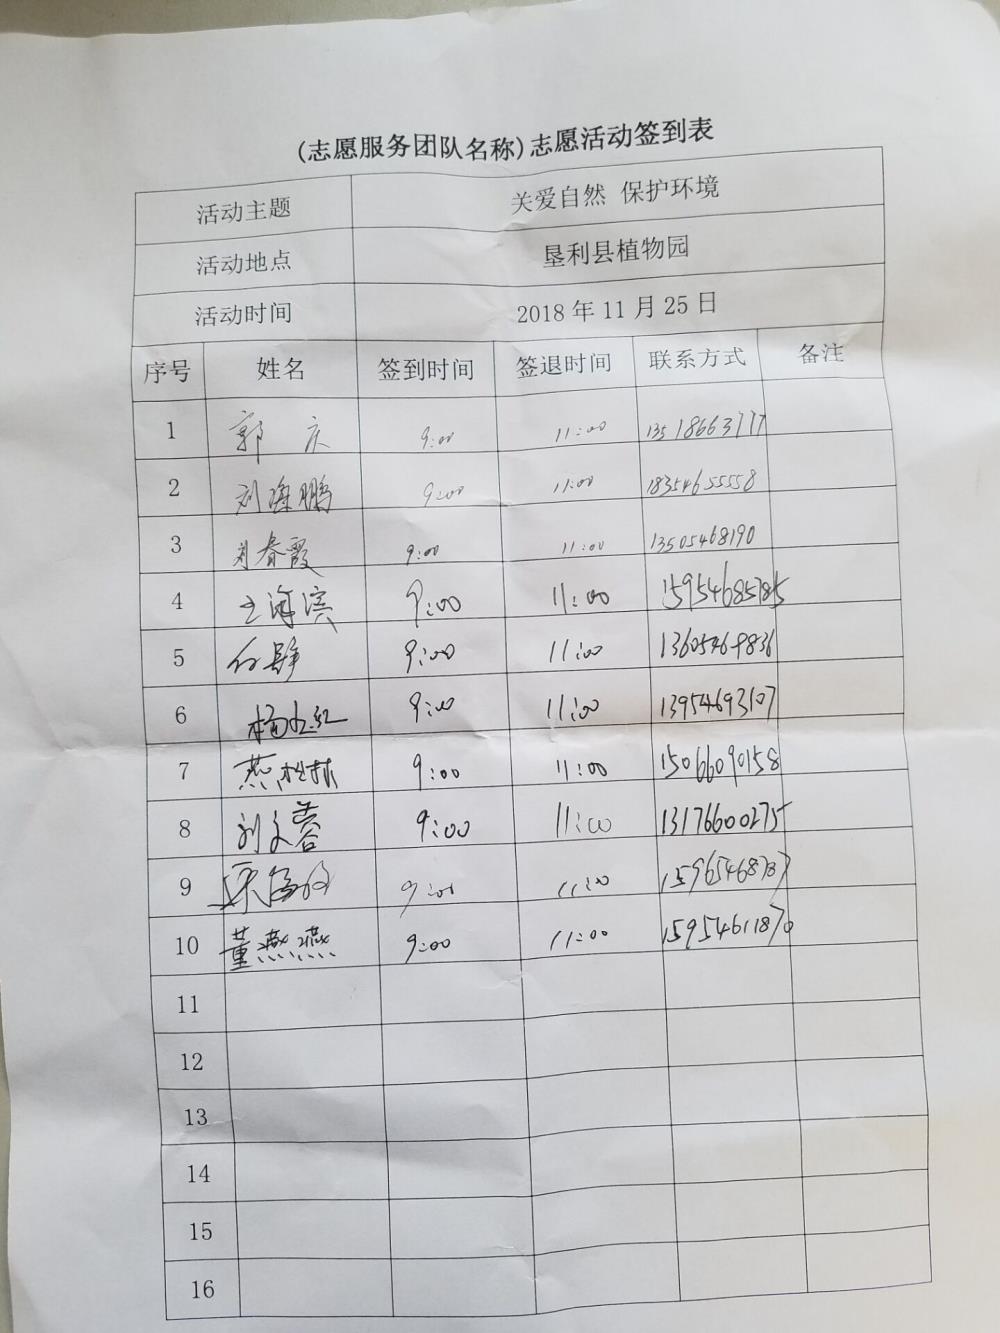 (志愿服务团队名称)志愿活动签到表
活动主题 关爱自然 保护环境
活动地点 垦利县植物园
活动时间 2018年11月25日
序号 姓名 签到时间 签退时间 联系方式 备注
1 郭庆 9:00 11:00 13518663777
2 刘海鹏 9:00 11:00 18354655558
3 刘春霞 9:00 11:00 13505468190
4 王海滨 9:00 11:00 15954685785
5 9:00 11:00 13605469836
6 9:00 11:00 13954693107
7 燕松林 9:00 11:00 15066090158
8 刘文蓉 9:00 11:00 13176600275
9 9:00 11:00 15965468787
10 董燕燕 9:00 11:00 15954611870
11
12
13
14
15
16